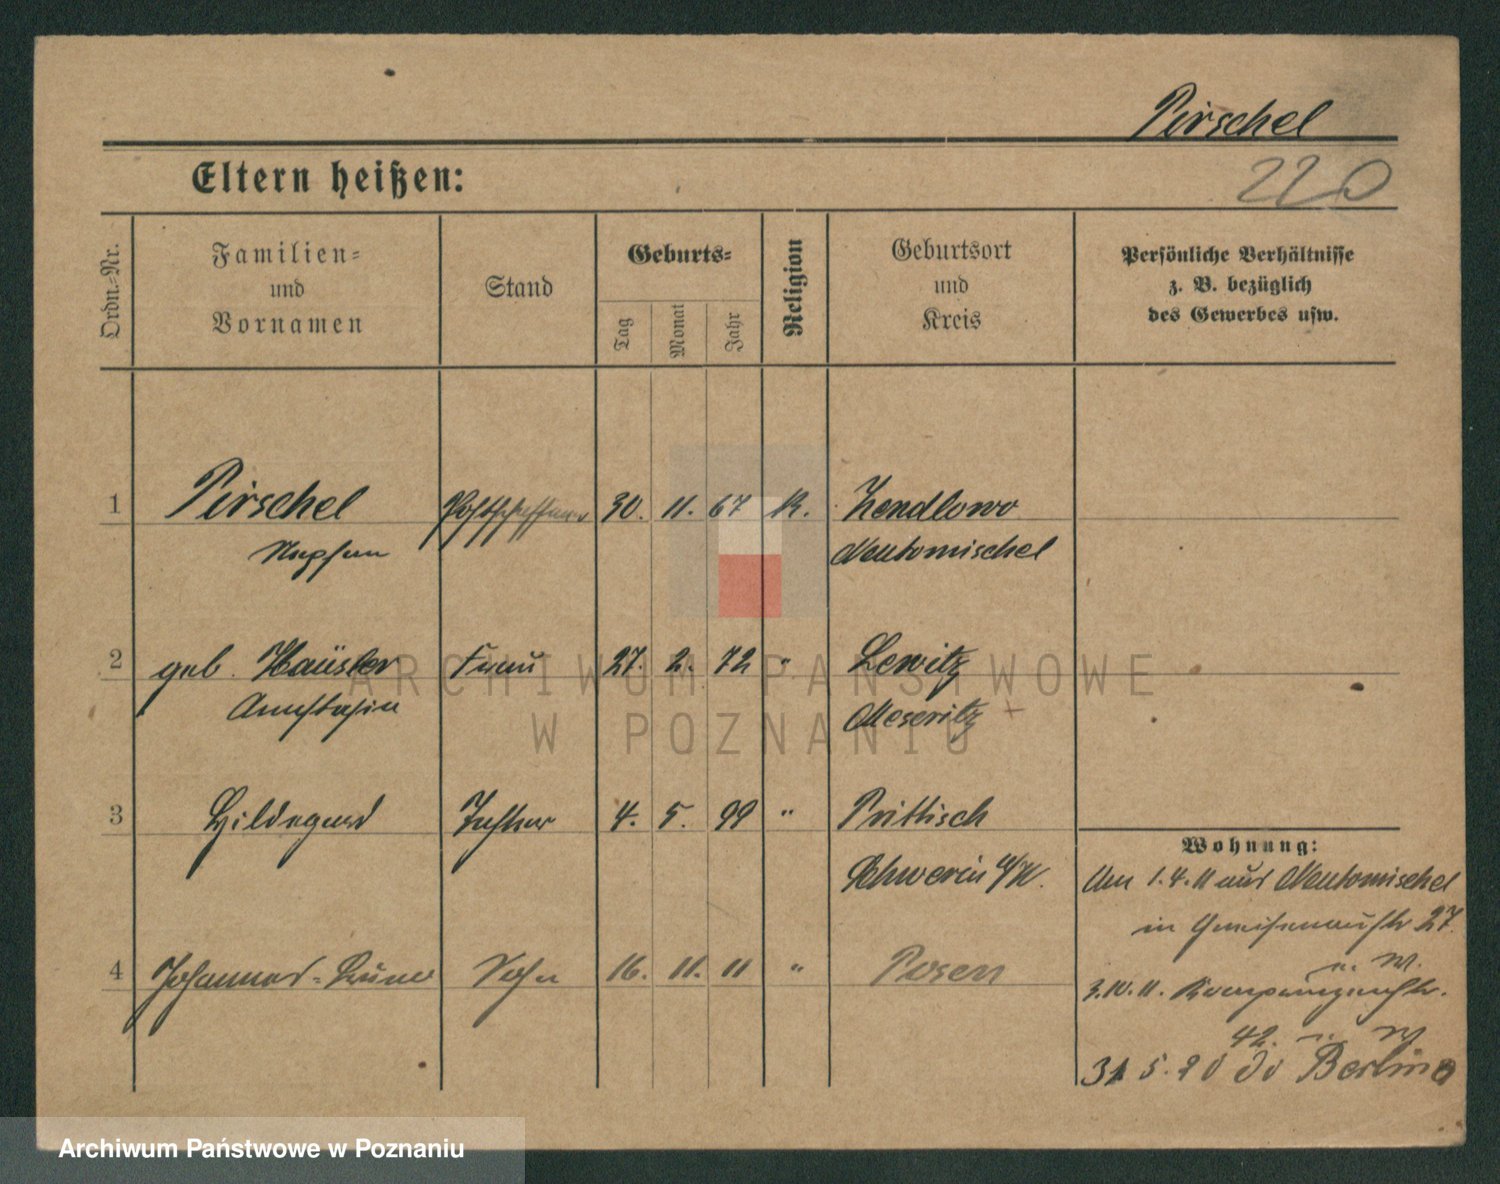 Pirschel
220
Eltern heißen:
Ordn.-Nr.
Familien-
und
Vornamen
Stand
Geburts-
Tag
Monat
Jahr
Religion
Geburtsort
und
Kreis
Persönliche Verhältnisse
z. B. bezüglich
des Gewerbes usw.
1 Pirschel 30. 11. 67 K. Zendlowo
Neutomischel
2 geb. Häusler Frau 27. 2. 72 " Lewitz
Anastasia Meseritz +
3 Hildegard Tochter 4. 5. 99 " Prittisch
Schwerin a/W.
Wohnung:
Am 1.4.11 aus Neutomischel
in Gneisenaustr 27
n. W.
4 Johannes-Bruno Sohn 16. 11. 11 " Posen
3.10.11.
42. n. W
31 5. 20 do Berlin
ARCHIWUM PAŃSTWOWE
W POZNANIU
Archiwum Państwowe w Poznaniu